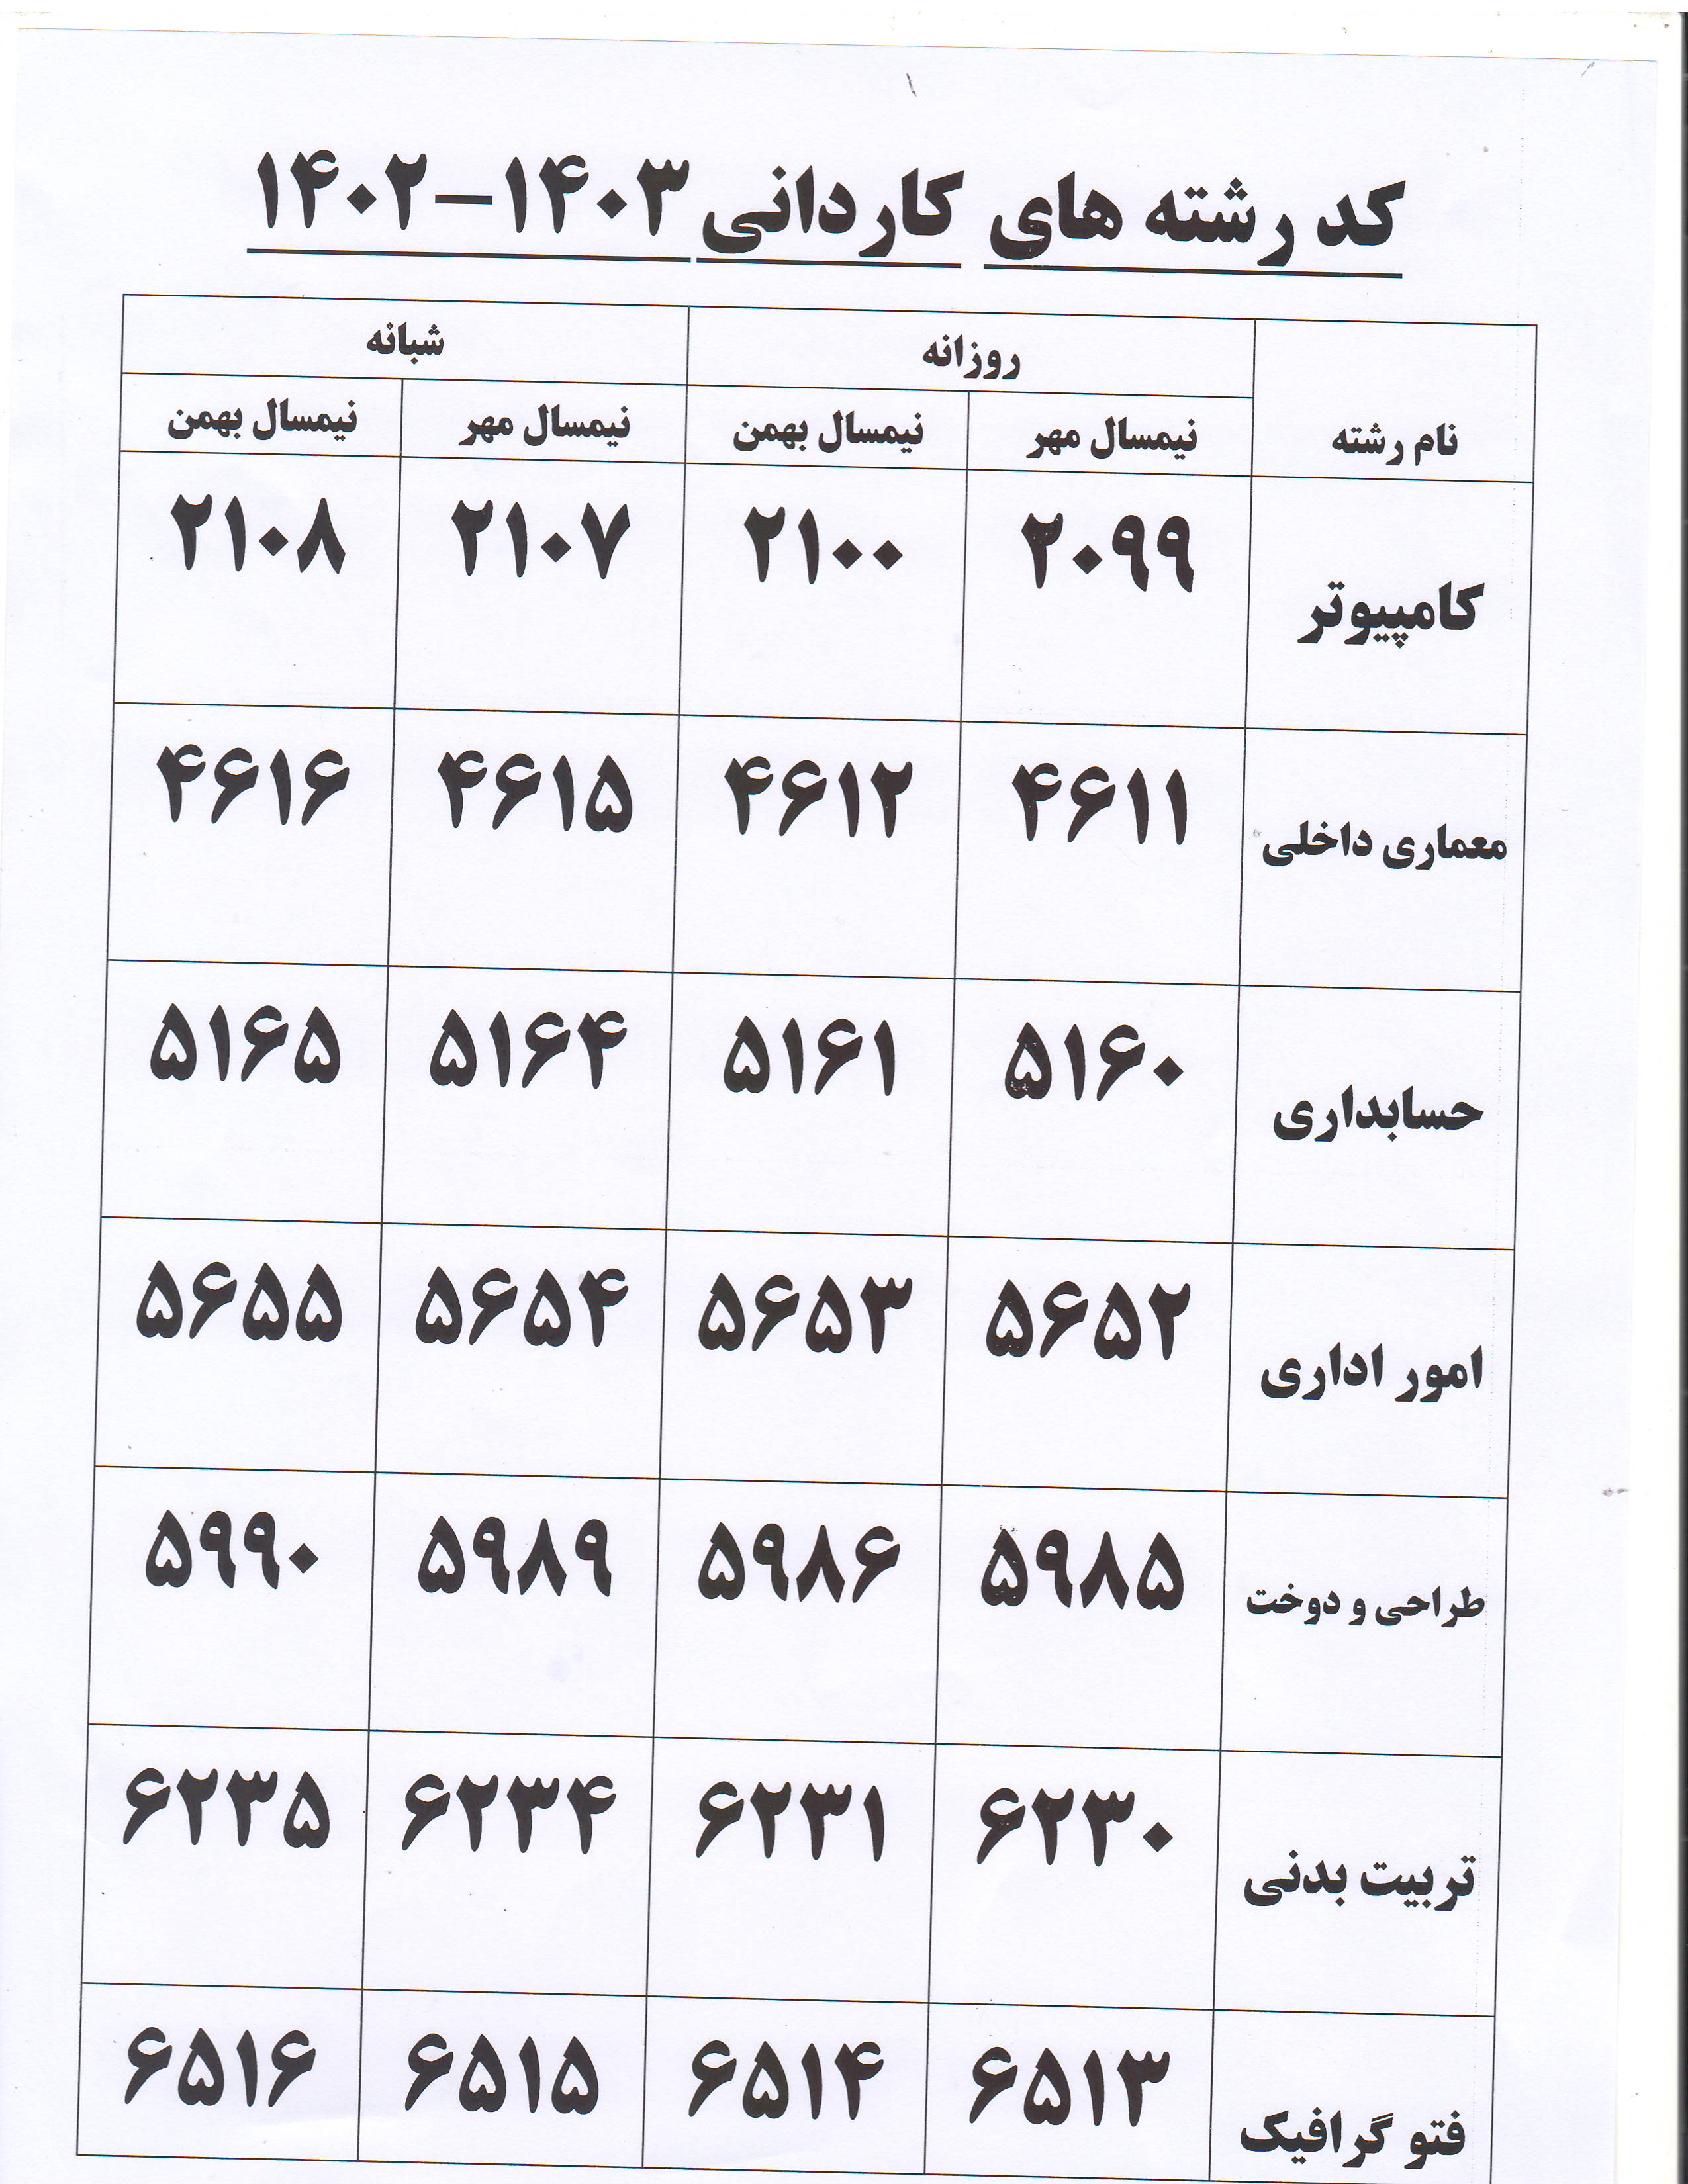 کد رشته های کاردانی ۱۴۰۳-۱۴۰۲
نام رشته روزانه شبانه
نیمسال مهر نیمسال بهمن نیمسال مهر نیمسال بهمن
کامپیوتر ۲۰۹۹ ۲۱۰۰ ۲۱۰۷ ۲۱۰۸
معماری داخلی ۴۶۱۱ ۴۶۱۲ ۴۶۱۵ ۴۶۱۶
حسابداری ۵۱۶۰ ۵۱۶۱ ۵۱۶۴ ۵۱۶۵
امور اداری ۵۶۵۲ ۵۶۵۳ ۵۶۵۴ ۵۶۵۵
طراحی و دوخت ۵۹۸۵ ۵۹۸۶ ۵۹۸۹ ۵۹۹۰
تربیت بدنی ۶۲۳۰ ۶۲۳۱ ۶۲۳۴ ۶۲۳۵
فتو گرافیک ۶۵۱۳ ۶۵۱۴ ۶۵۱۵ ۶۵۱۶